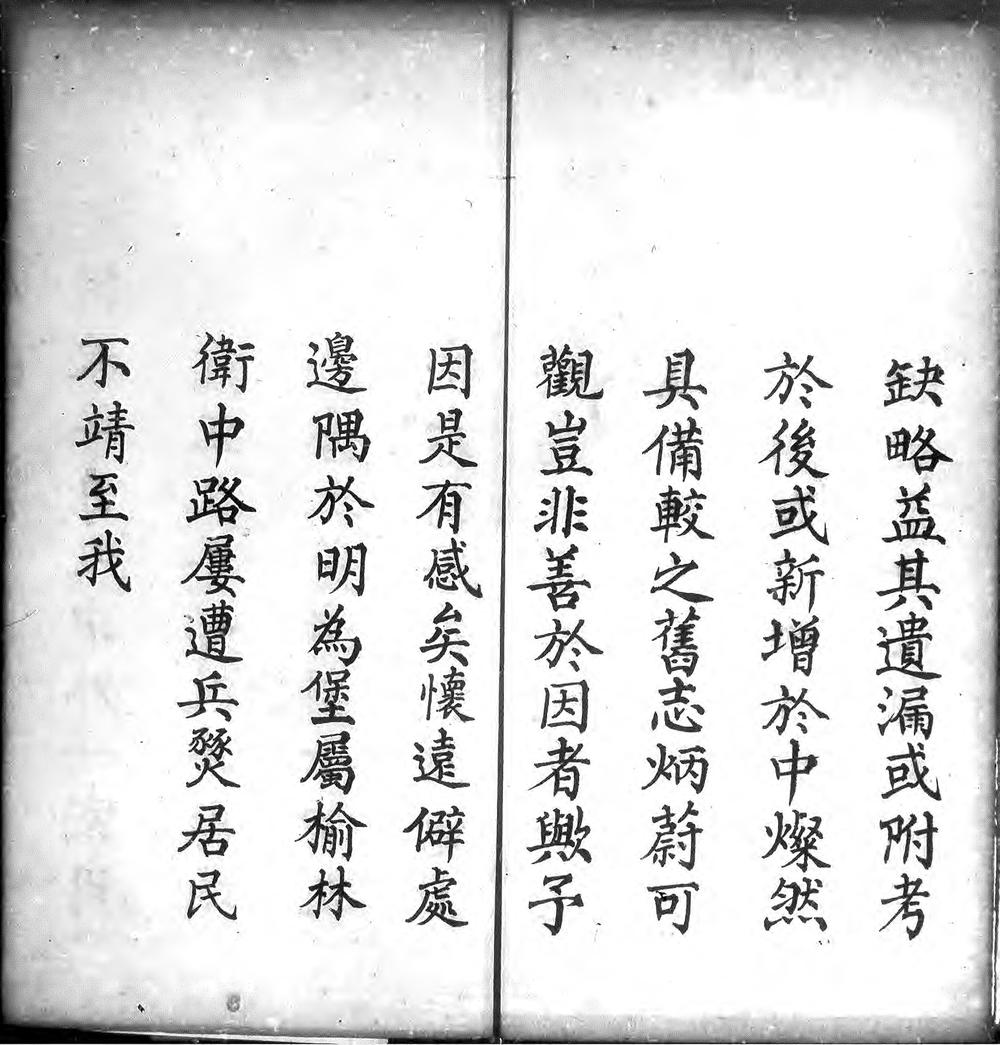 缺略益其遺漏或附考
於後或新增於中燦然
具備較之舊志炳蔚可
觀豈非善於因者歟予
因是有感矣懷遠僻處
邊隅於明為堡屬榆林
衛中路屢遭兵燹居民
不靖至我